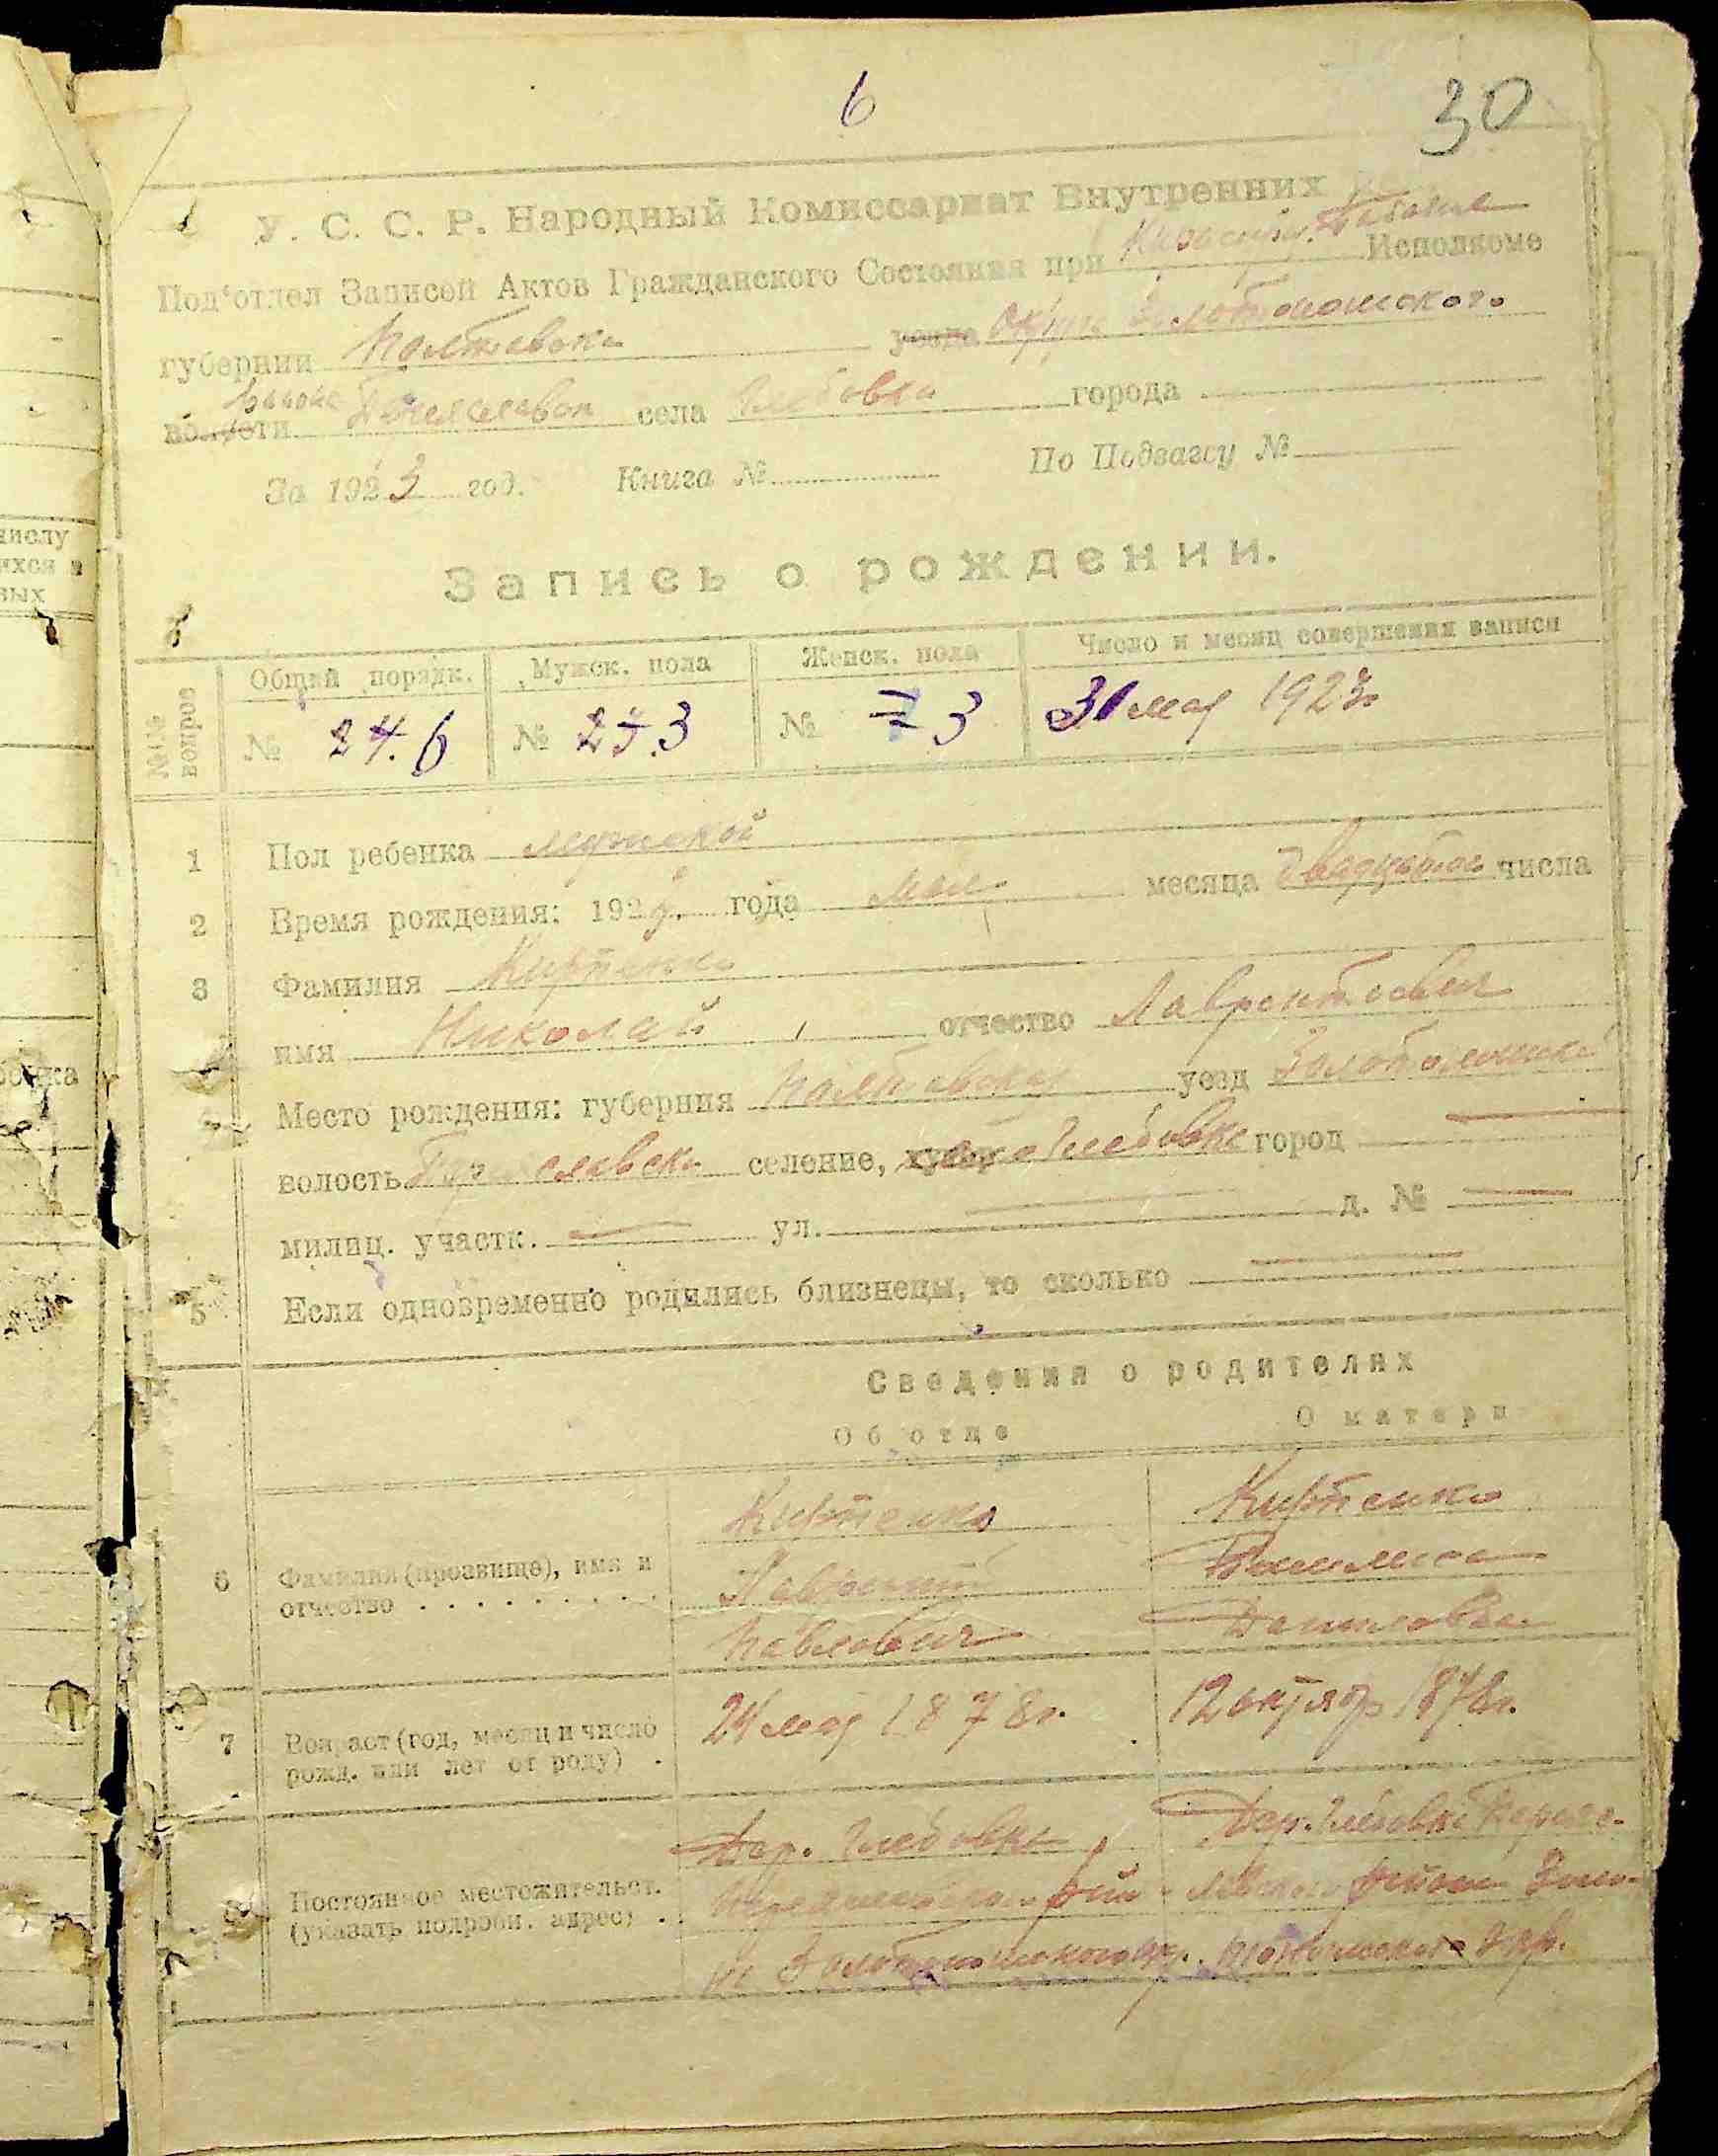 6
30
У. С. С. Р. Народный Комиссариат Внутренних
Под'отдел Записей Актов Гражданского Состояния при Исполкоме
губернии Полтавск. уезда Окру. Золотоношского
волости района села Глебовка города
За 1923 год. Книга № По Подзагсу №
Запись о рождении.
№№ вопров
Общий порядк.
Мужск. пола
Женск. пола
Число и месяц совершения записи
№ 24. 6
№ 3
№ 3
31 мая 1923г
1 Пол ребенка мужской
2 Время рождения: 1923. года мая месяца двадцатого числа
3 Фамилия Кирпенко
имя Николай отчество Лаврентьевич
Место рождения: губерния Полтавская уезд Золотоношский
волость селение, Глебовка город
милиц. участк. — ул. — д. № —
5 Если одновременно родились близнецы, то сколько —
Сведения о родителях
Об отце
О матери
6 Фамилия (прозвище), имя и
отчество
Кирпенко
Лаврентий
Павлович
Кирпенко
Даниловна
7 Возраст (год, месяц и число
рожд. или лет от роду) .
24 мая 1878г.
12 октября 1878г.
8 Постоянное местожительст.
(указать подробн. адрес) . .
Дер. Глебовка
Золотоношского окр.
Дер. Глебовка
района Золо-
тоношского окр.